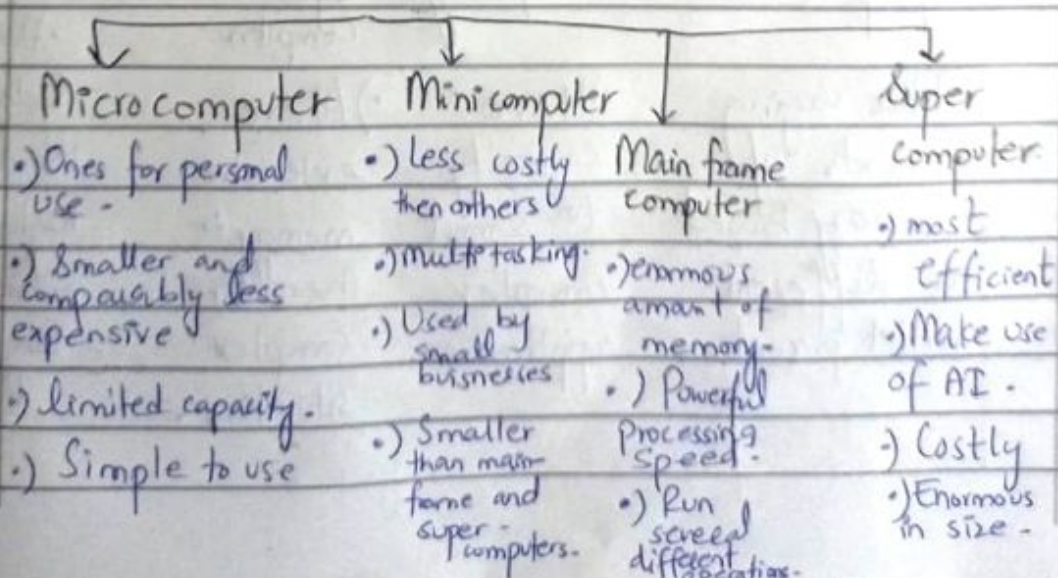 Microcomputer
•) Ones for personal
use -
•) Smaller and
comparably less
expensive
•) limited capacity.
•) Simple to use
Minicomputer
•) less costly
then orthers
•) multe tasking.
•) Used by
small
buisnesses
•) Smaller
than main-
frame and
super-
computers-
Main frame
computer
•) enormous
amount of
memory-
•) Powerful
processing
speed.
•) Run
several
different
operations-
Super
computer.
•) most
efficient
•) Make use
of AI.
•) Costly
•) Enormous
in size -